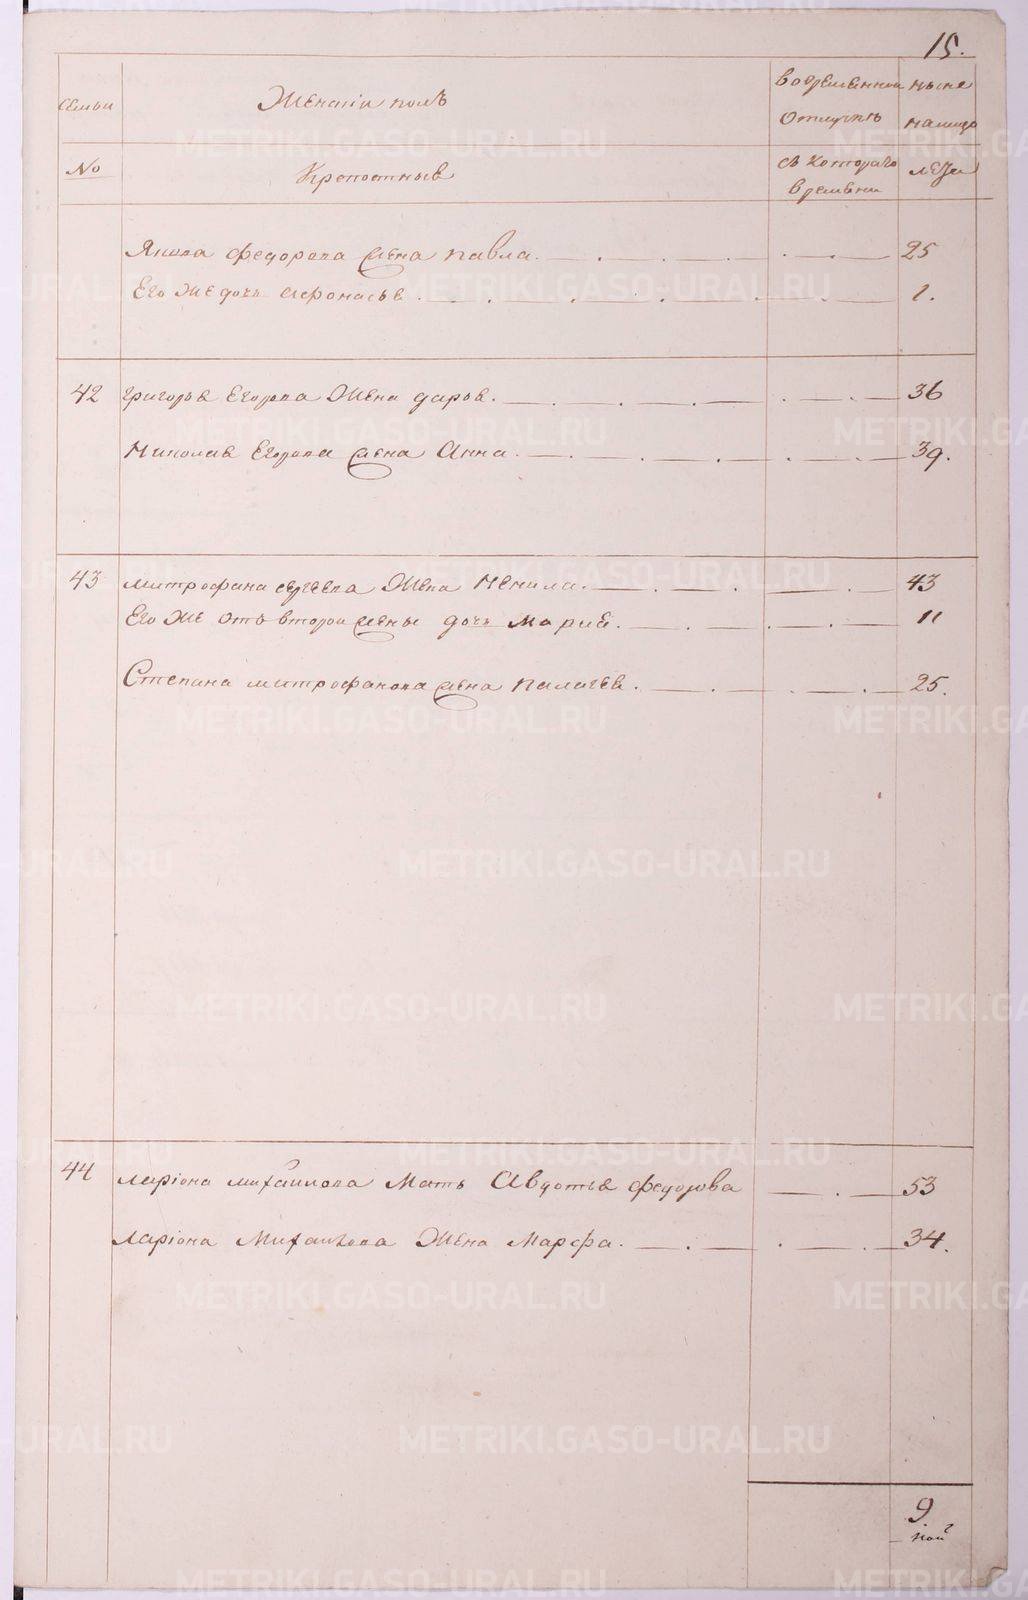 15.
семьи
Женскiй полъ
во временной отлучкѣ
ныне на лицо
No
Крепостные
съ котораго времени
лета
Якова Федорова жена Павла. 25
Его же дочь Афонасья. 1.
42 Григорья Егорова Жена Дарья. 36
Николая Егорова жена Анна. 39.
43 Митрофана Сергеева Жена Ненила. 43
Его же отъ второй жены дочь Мария. 11
Степана Митрофанова жена Палагея. 25.
44 Ларiона Михайлова Мать Авдотья Федорова 53
Ларiона Михайлова Жена Марфа. 34.
9.
METRIKI.GASO-URAL.RU